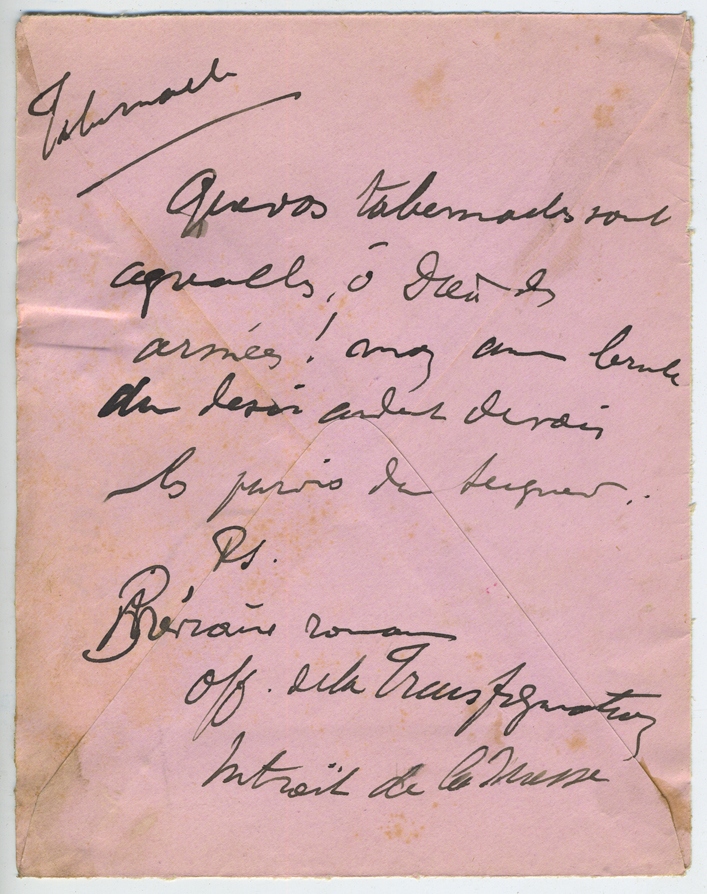 Tabernacle
Que vos tabernacles sont
agréables, ô Dieu des
armées ! mon âme brule
du desir ardent de voir
les parvis du Seigneur..
Ps.
Bréviaire romain
off. de la Transfiguration
Introït de la Messe